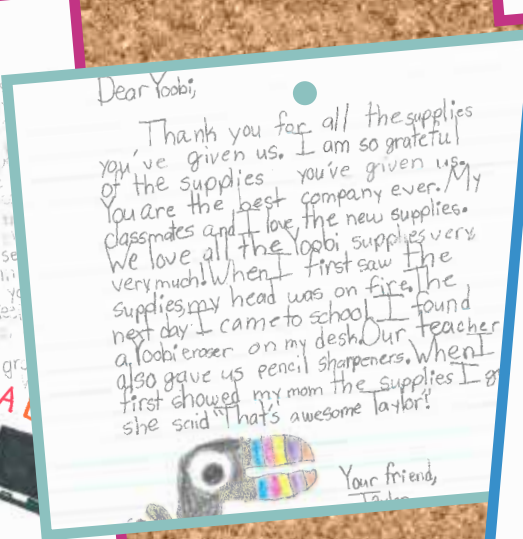 Dear Yoobi,
Thank you for all the supplies
you've given us. I am so grateful
of the supplies you've given us. My
You are the best company ever.
classmates and I love the new supplies.
We love all the Yoobi supplies very
very much! When I first saw the
supplies, my head was on fire. The
next day I came to school I found
a Yoobi eraser on my desk. Our teacher
also gave us pencil sharpeners. When I
first showed my mom the supplies I
she said "That's awesome Taylor!"
Your friend,